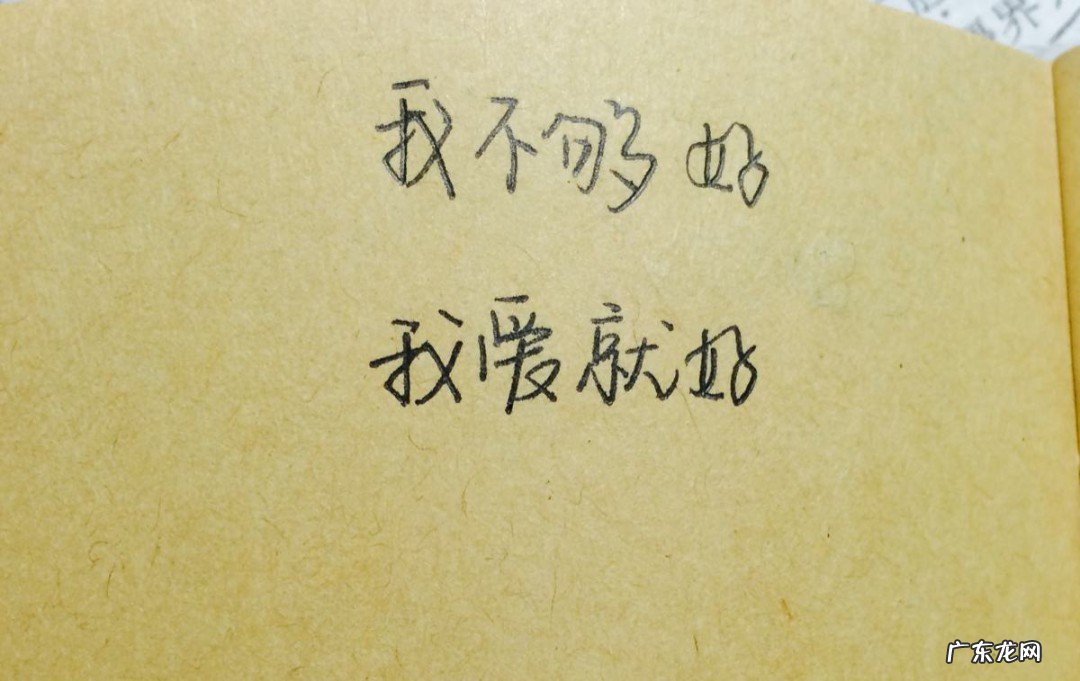 我不够好
我爱就好
广东龙网